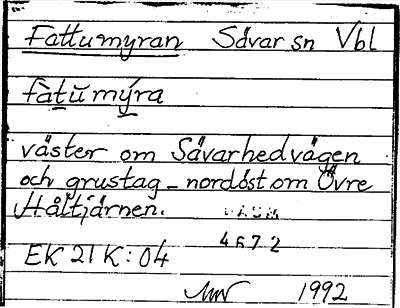 Fattumyran Sävar sn Vbl
fàtu mýra
väster om Sävarhedvägen
och grustag - nordöst om Övre
Håltjärnen.
DAUM
4672
EK 21 K: 04
1992